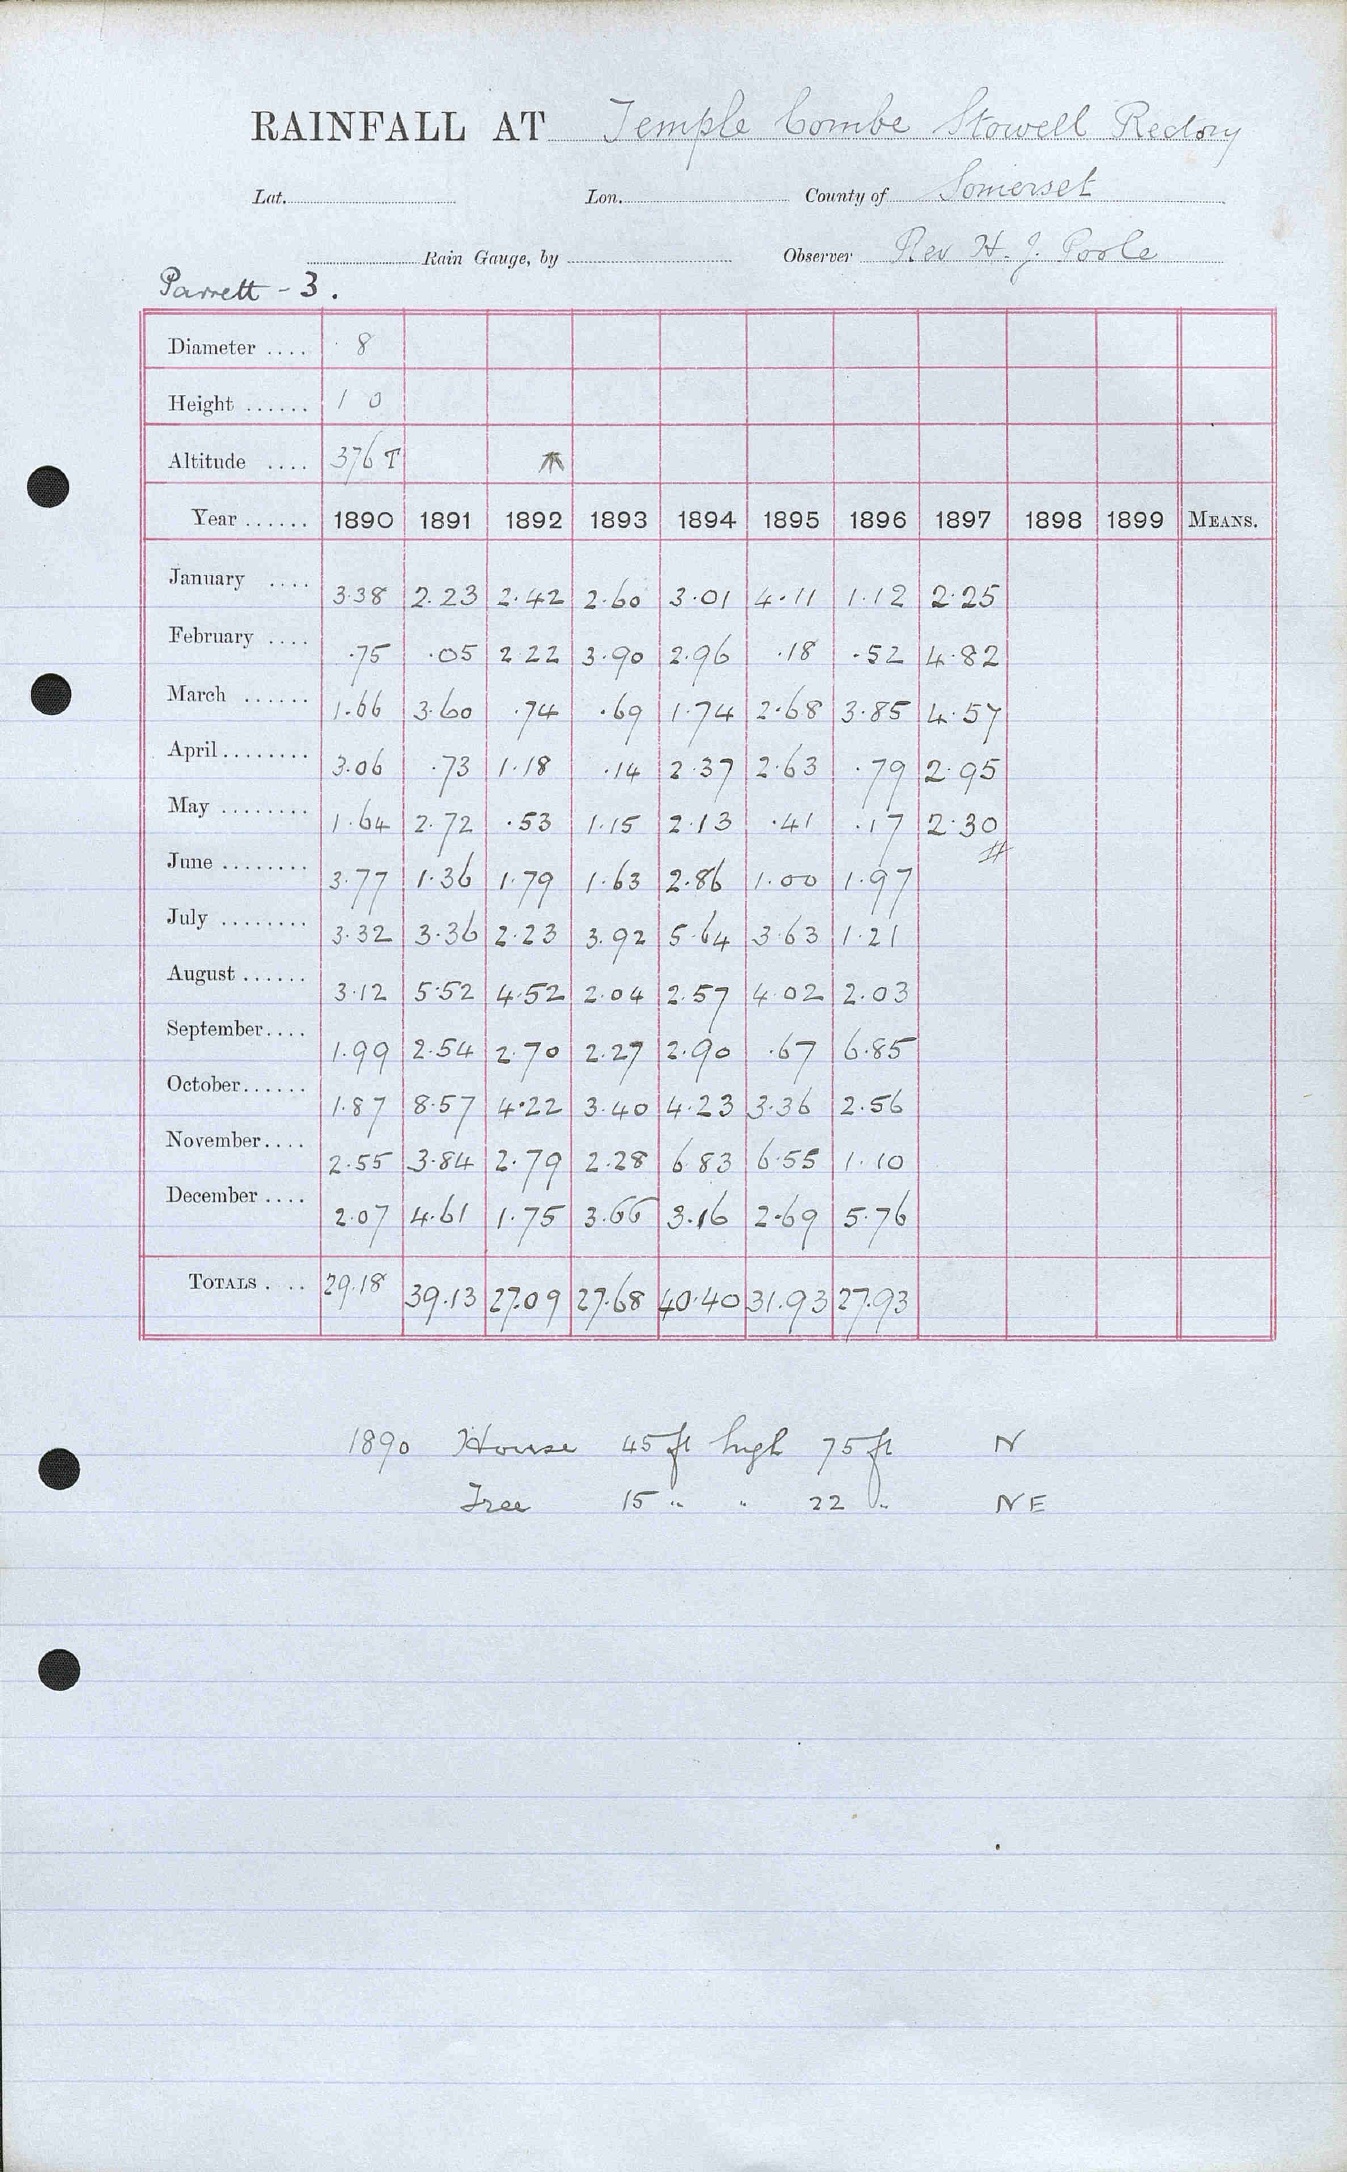 RAINFALL AT Temple Combe Stowell Rectory
Lat. Lon. County of Somerset
Rain Gauge, by Observer Rev H. J. Poole
Parrett - 3.
Diameter .... 8
Height ...... 1 0
Altitude .... 376 T
Year ...... 1890 1891 1892 1893 1894 1895 1896 1897 1898 1899 MEANS.
January .... 3.38 2.23 2.42 2.60 3.01 4.11 1.12 2.25
February .... .75 .05 2.22 3.90 2.96 .18 .52 4.82
March ...... 1.66 3.60 .74 .69 1.74 2.68 3.85 4.57
April ........ 3.06 .73 1.18 .14 2.37 2.63 .79 2.95
May ........ 1.64 2.72 .53 1.15 2.13 .41 .17 2.30
June ........ 3.77 1.36 1.79 1.63 2.86 1.00 1.97
July ........ 3.32 3.36 2.23 3.92 5.64 3.63 1.21
August ...... 3.12 5.52 4.52 2.04 2.57 4.02 2.03
September .... 1.99 2.54 2.70 2.27 2.90 .67 6.85
October ...... 1.87 8.57 4.22 3.40 4.23 3.36 2.56
November .... 2.55 3.84 2.79 2.28 6.83 6.55 1.10
December .... 2.07 4.61 1.75 3.66 3.16 2.69 5.76
TOTALS .... 29.18 39.13 27.09 27.68 40.40 31.93 27.93
1890 House 45 ft high 75 ft N
Tree 15 " " 22 " NE